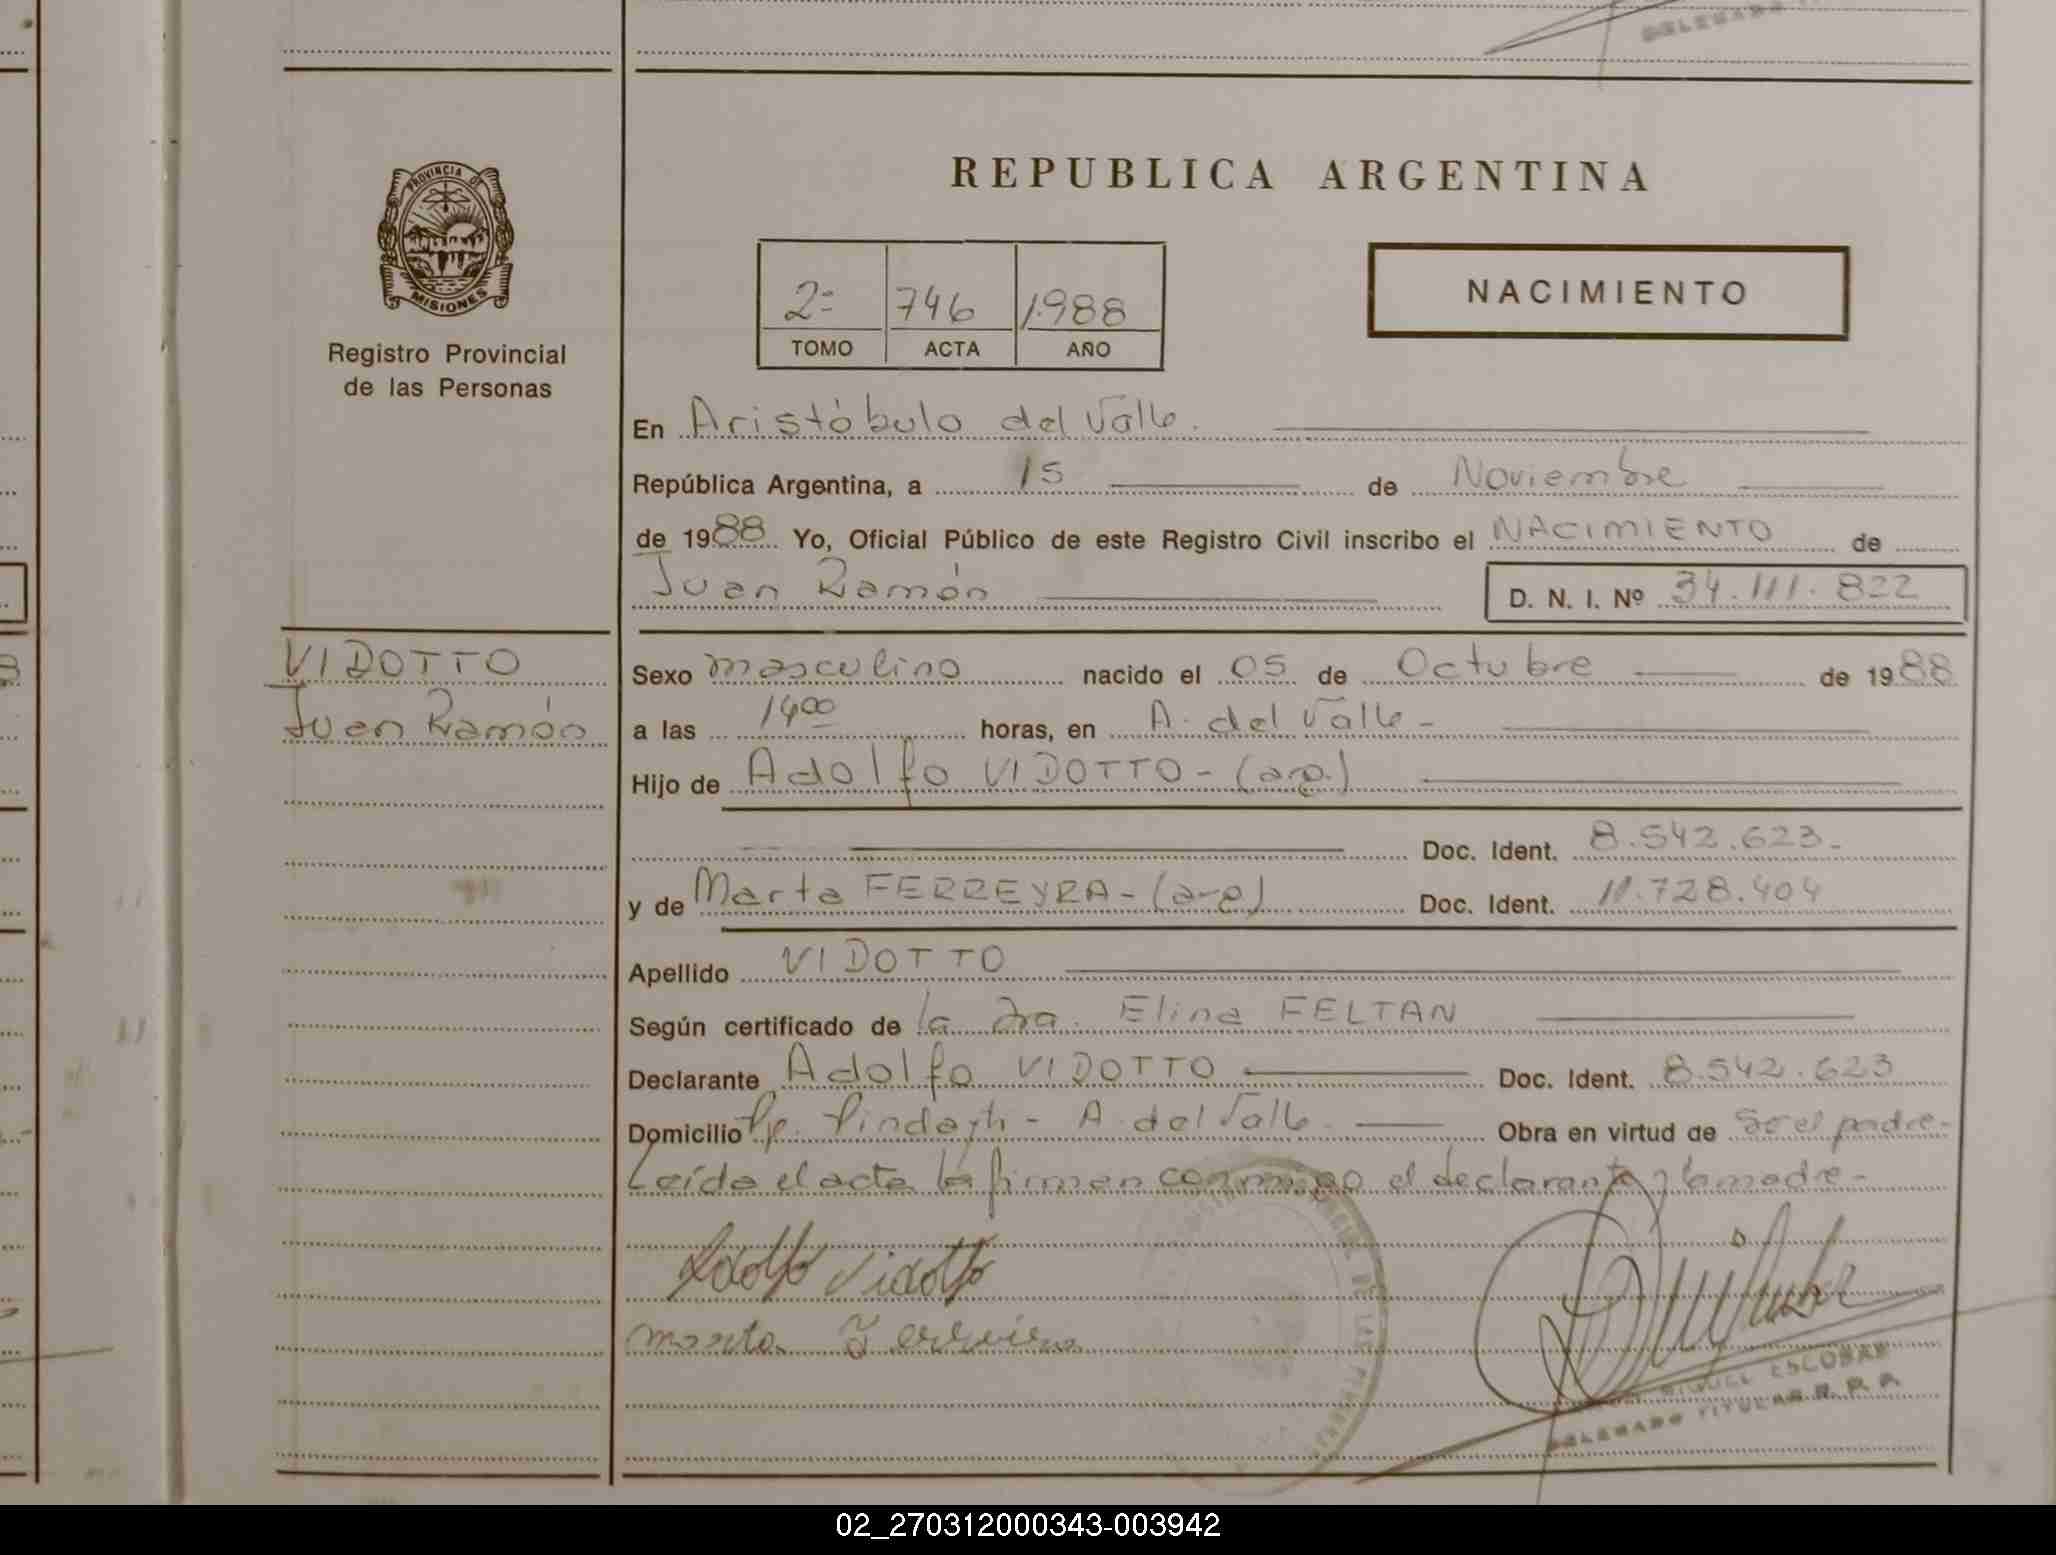 DELEGADO
REPUBLICA ARGENTINA
PROVINCIA DE
MISIONES
Registro Provincial
de las Personas
2º 746 1.988
TOMO ACTA AÑO
NACIMIENTO
En Aristóbulo del Valle.
República Argentina, a 15 de Noviembre
de 1988 Yo, Oficial Público de este Registro Civil inscribo el NACIMIENTO de
Juan Ramón D. N. I. Nº 34.111.822
VIDOTTO
Juan Ramón
Sexo masculino nacido el 05 de Octubre de 1988
a las 14 00 horas, en A. del Valle -
Hijo de Adolfo VIDOTTO - (arg.)
Doc. Ident. 8.542.623.-
y de Marta FERREYRA - (arg) Doc. Ident. 11.728.404
Apellido VIDOTTO
Según certificado de la Dra. Elina FELTAN
Declarante Adolfo VIDOTTO Doc. Ident. 8.542.623
Domicilio Pindayti - A. del Valle. Obra en virtud de ser el padre.-
Leída el acta la firman conmigo el declarante y la madre -
Adolfo Vidotto
marta Ferreira
DE LAS PERSONAS
MIGUEL ESCOBAR
DELEGADO TITULAR R. P. P.
02_270312000343-003942